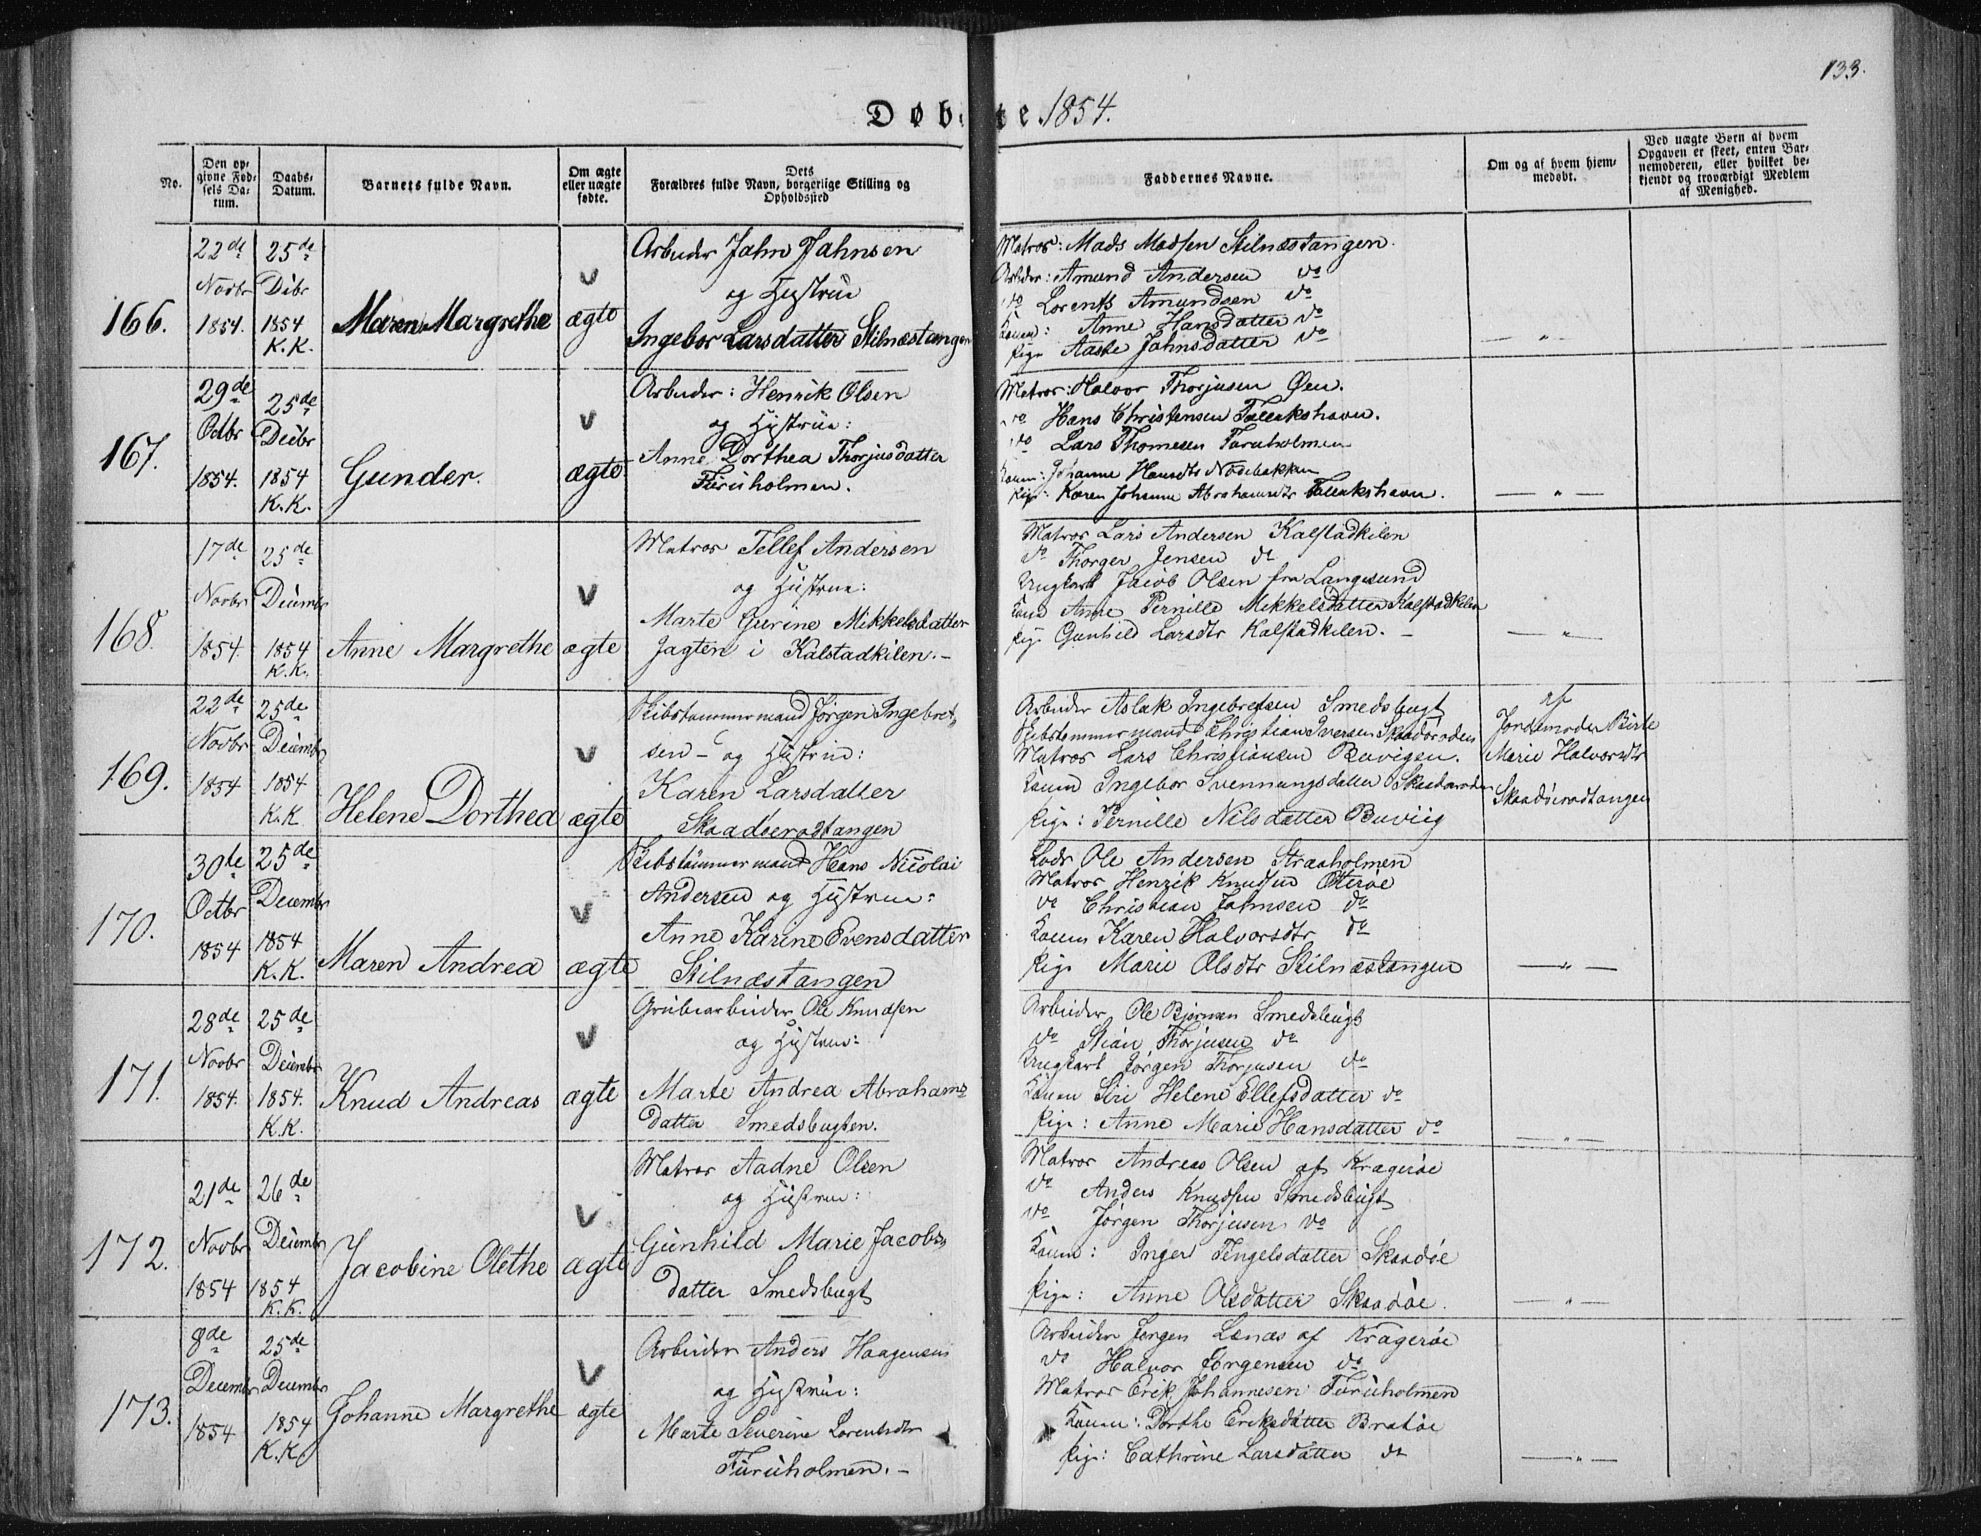 133.
Døbte 1854.
No.
Den op-
givne Fød-
sels Da-
tum.
Daabs-
Datum.
Barnets fulde Navn.
Om ægte
eller uægte
fødte.
Dets
Forældres fulde Navn, borgerlige Stilling og
Opholdssted
Faddernes Navne.
Om og af hvem hjem-
medøbt.
Ved uægte Børn af hvem
Opgaven er skeet, enten Bar-
nemoderen, eller hvilket be-
kjendt og troværdigt Medlem
af Menighed.
166.
22de
Novbr
1854.
25de
Dcbr
1854
K.K.
Maren Margrethe
ægte
Arbeider Jahn Jahnsen
og Hustrue
Ingebor Larsdatter Stilnæstangen
Matros: Mads Madsen Stilnæstangen.
Arbeider: Amund Andersen do
do Lorents Amundsen do
Konen: Anne Hansdatter do
Pige Aaste Jahnsdatter do
— " —
167.
29de
Octbr
1854.
25de
Decbr
1854
K.K.
Gunder.
ægte
Arbeider: Henrik Olsen
og Hustrue:
Anne Dorthea Thorjusdatter
Furuholmen.
Matros: Halvor Thorjusen Øen.
do Hans Christensen Tallakshavn.
do Lars Thomesen Furuholmen
Konen: Johanne Hansdtr Nødebakken
Pige: Karen Johanne Abrahamsdtr Tallakshavn.
— " —
168.
17de
Novbr
1854.
25de
Decembr
1854
K.K.
Anne Margrethe
ægte
Matros Tellef Andersen
og Hustrue:
Marte Gurine Mikkelsdatter
Jagten i Kalstadkilen.—
Matros Lars Andersen Kalstadkilen
do Thorger Jensen do
Ungkarl Jacob Olsen fra Langesund
Kone Anne Pernille Mikkelsdatter Kalstadkilen
Pige Gunhild Larsdtr Kalstadkilen. —
— " —
169.
22de
Novbr
1854
25de
Decembr
1854
K.K
Helene Dorthea
ægte
Skibstømmermand Jørgen Ingebret-
sen — og Hustrue:
Karen Larsdatter
Skaadøerødtangen
Arbeider Aslak Ingebretsen Smedsbugt
Skibstømmermand Christian Iversen Skaadørøden
Matros Lars Christiansen Buvigen.
Konen Ingebor Svennungsdatter Skaadørøden
Pige: Pernille Nilsdatter Buviig
af
Jordemoder Birte
Marie Halvorsdtr
Skaadøerødtangen
170.
30de
Octbr
1854
25de
Decembr
1854
K.K.
Maren Andrea
ægte
Skibstømmermand Hans Nicolai
Andersen og Hustrue:
Anne Karine Evensdatter
Stilnæstangen
Lods Ole Andersen Straaholmen
Matros Henrik Knudsen Otterøe
do Christian Jahnsen do
Konen Karen Halvorsdtr do
Pige Marie Olsdtr Stilnæstangen
— " —
171.
28de
Novbr
1854.
25de
Decembr
1854.
K.K.
Knud Andreas
ægte
Grubearbeider Ole Knudsen
og Hustrue:
Marte Andrea Abrahams-
datter Smedsbugten.
Arbeider Ole Bjørnsen Smedsbugt
do Stian Thorjusen do
Ungkarl Jørgen Thorjusen do
Konen Siri Helene Ellefsdatter do
Pige: Anne Marie Hansdatter do
— " —
172.
21de
Novbr
1854
26de
Decembr
1854
K.K.
Jacobine Olethe
ægte
Matros Aadne Olsen
og Hustrue:
Gunhild Marie Jacobs-
datter Smedsbugt
Matros Andreas Olsen af Kragerøe
do Anders Knudsen Smedsbugt
do Jørgen Thorjusen do
Konen: Inger Tengelsdatter Skaadøe
Pige: Anne Olsdatter Skaadøe.
— " —
173.
8de
Decembr
1854
25de
Decembr
1854
K.K
Johanne Margrethe
ægte
Arbeider Anders Haagensen
og Hustrue:
Marte Severine Lorentsdtr
Furuholmen.—
Arbeider Jørgen Lænæs af Kragerøe
do Halvor Jørgensen do
Matros Erik Johannesen Furuholmen
Konen: Dorthe Eriksdatter Bratøe
Pige: Cathrine Larsdatter do
— " —